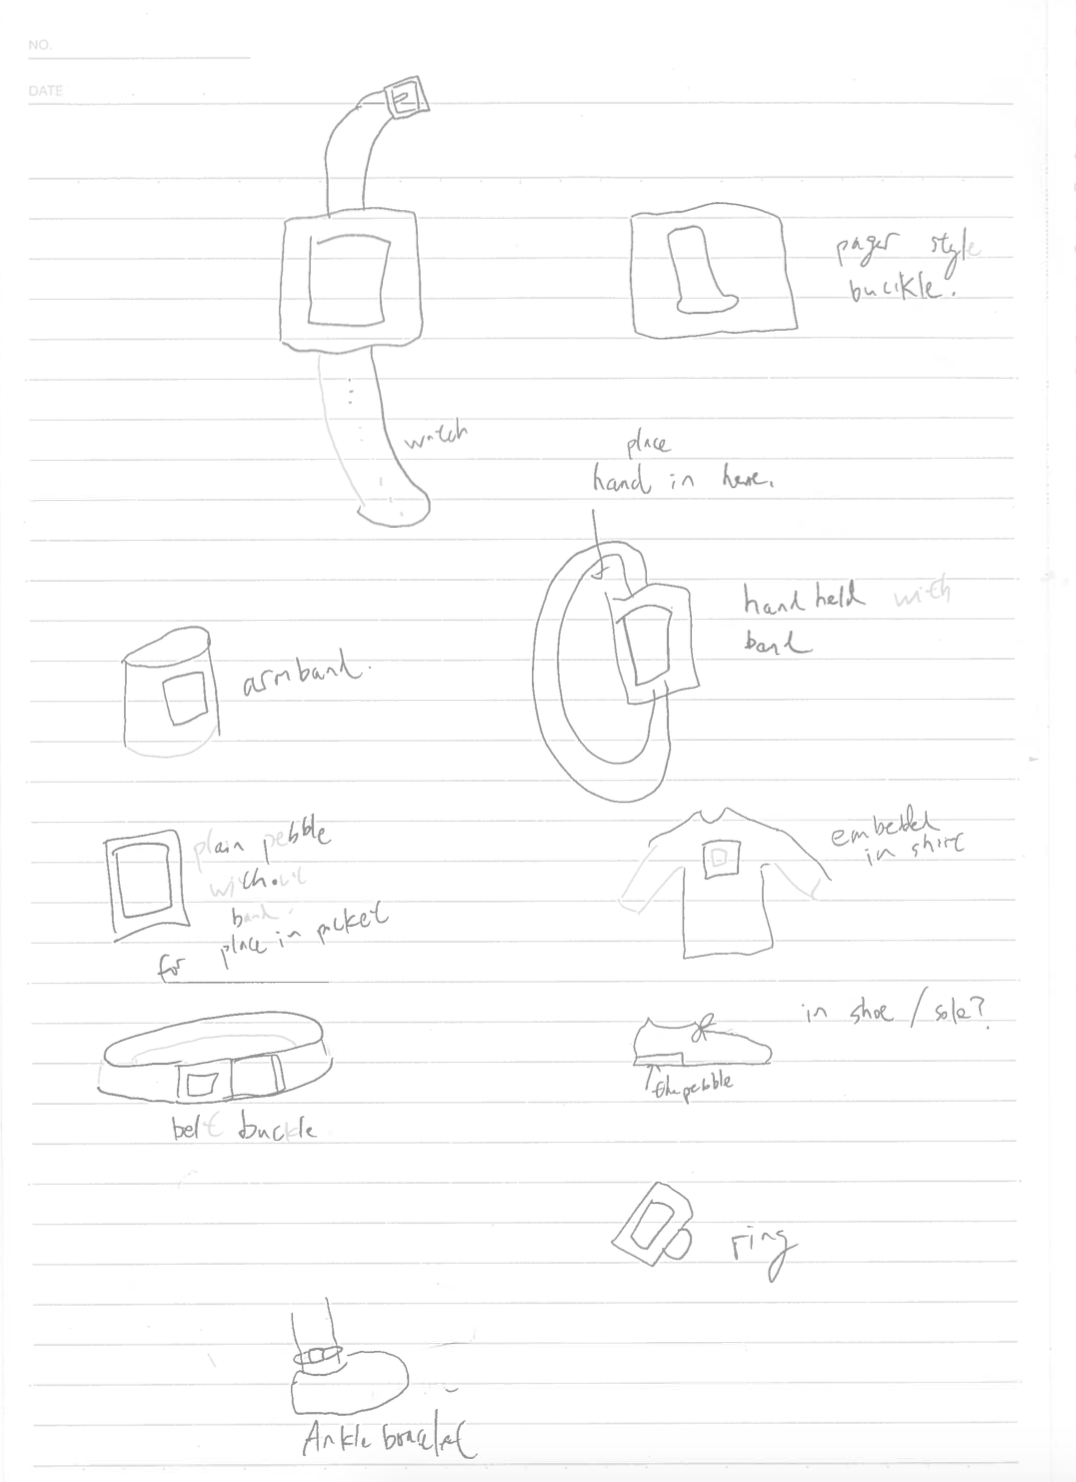 NO.
DATE
pager style
bucikle.
watch
place
hand in here.
hand held with
band
armband.
plain pebble
without
band
for place in pocket
embedded
in shirt
in shoe / sole?
the pebble
belt buckle
ring
Ankle bracelet